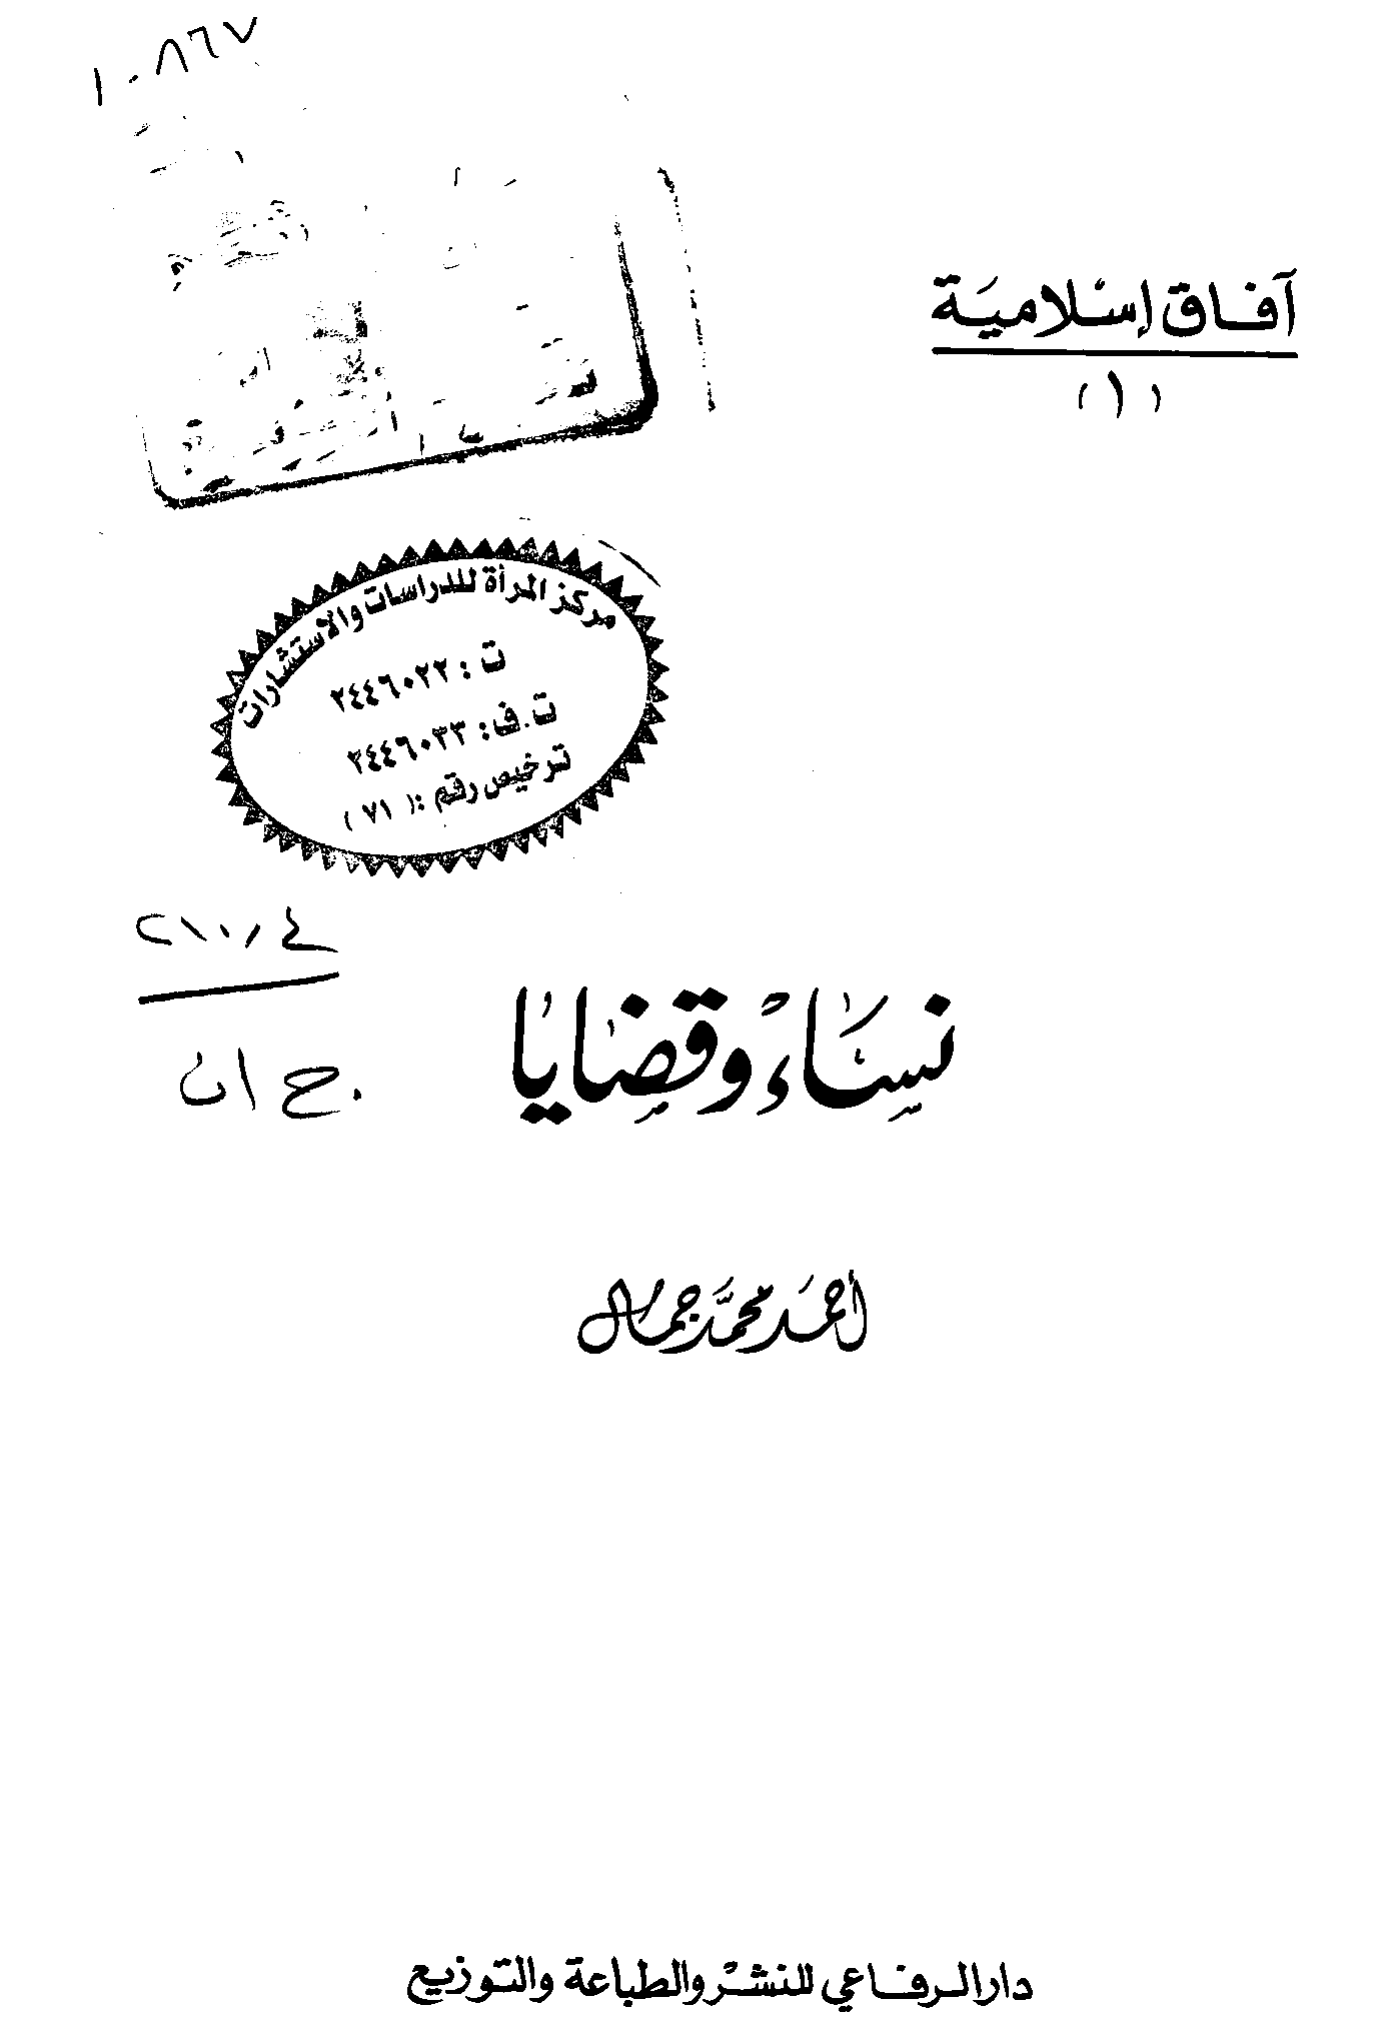 ١٠٨٦٧
آفاق إسلامية
(١)
مركز المرأة للدراسات والاستشارات
ت : ٢٤٤٦٠٢٢
ت.ف : ٢٤٤٦٠٣٣
ترخيص رقم : ( ٧١ )
٢١٠,٤
نساء وقضايا
أحمد محمد جمال
دار الرفاعي للنشر والطباعة والتوزيع